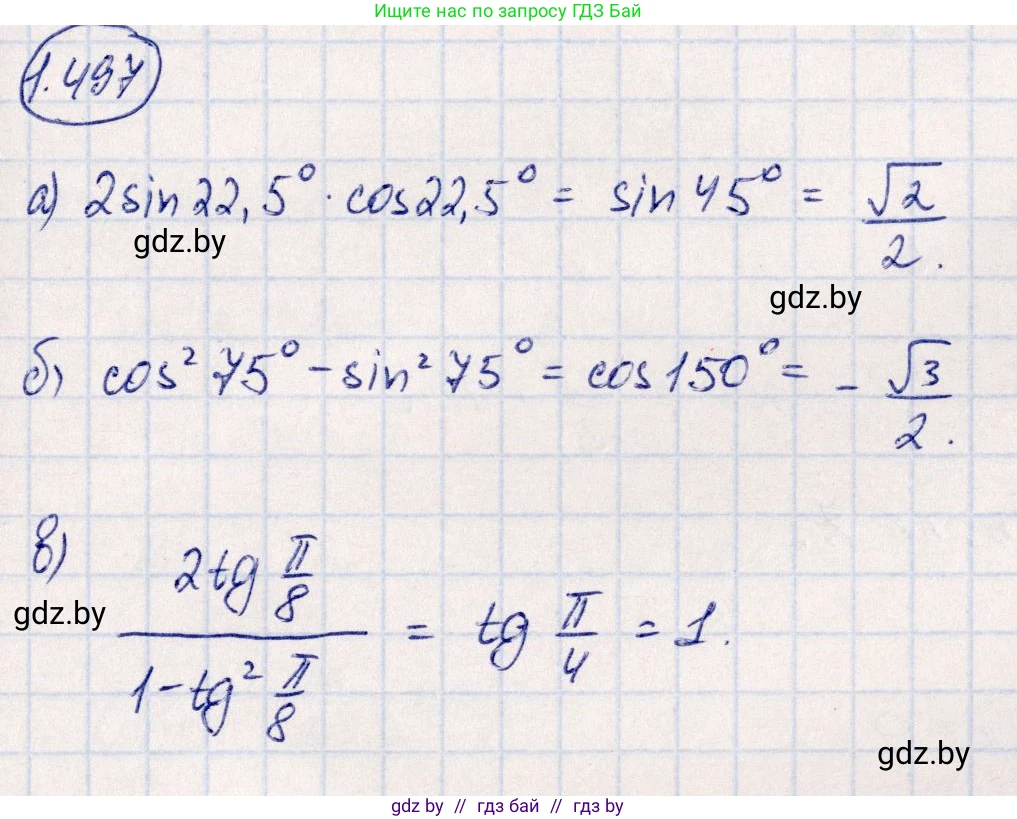 Ищите нас по запросу ГДЗ Бай
1.497
а) 2sin22,5° · cos22,5° = sin45° = √2/2.
gdz.by
gdz.by
б) cos²75° - sin²75° = cos150° = -√3/2.
в) 2tg π/8 / 1-tg² π/8 = tg π/4 = 1.
gdz.by
gdz.by
gdz by // гдз бай // гдз by